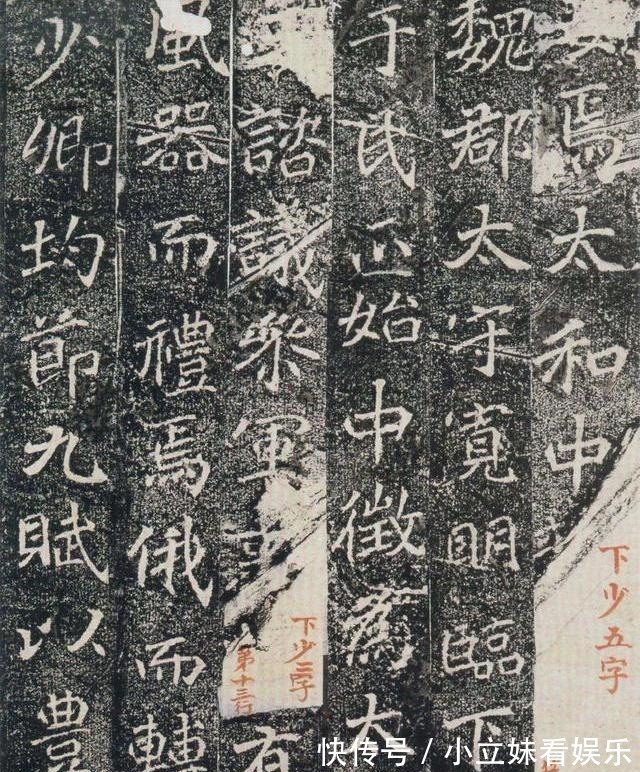 焉太和中
下少五字
魏郡太守寛明臨下
于氏正始中徵為大
諮議參軍
下少二字
第十三行
有
風器而禮焉俄而轉
少卿均節九賦以豊
快传号/小立妹看娱乐